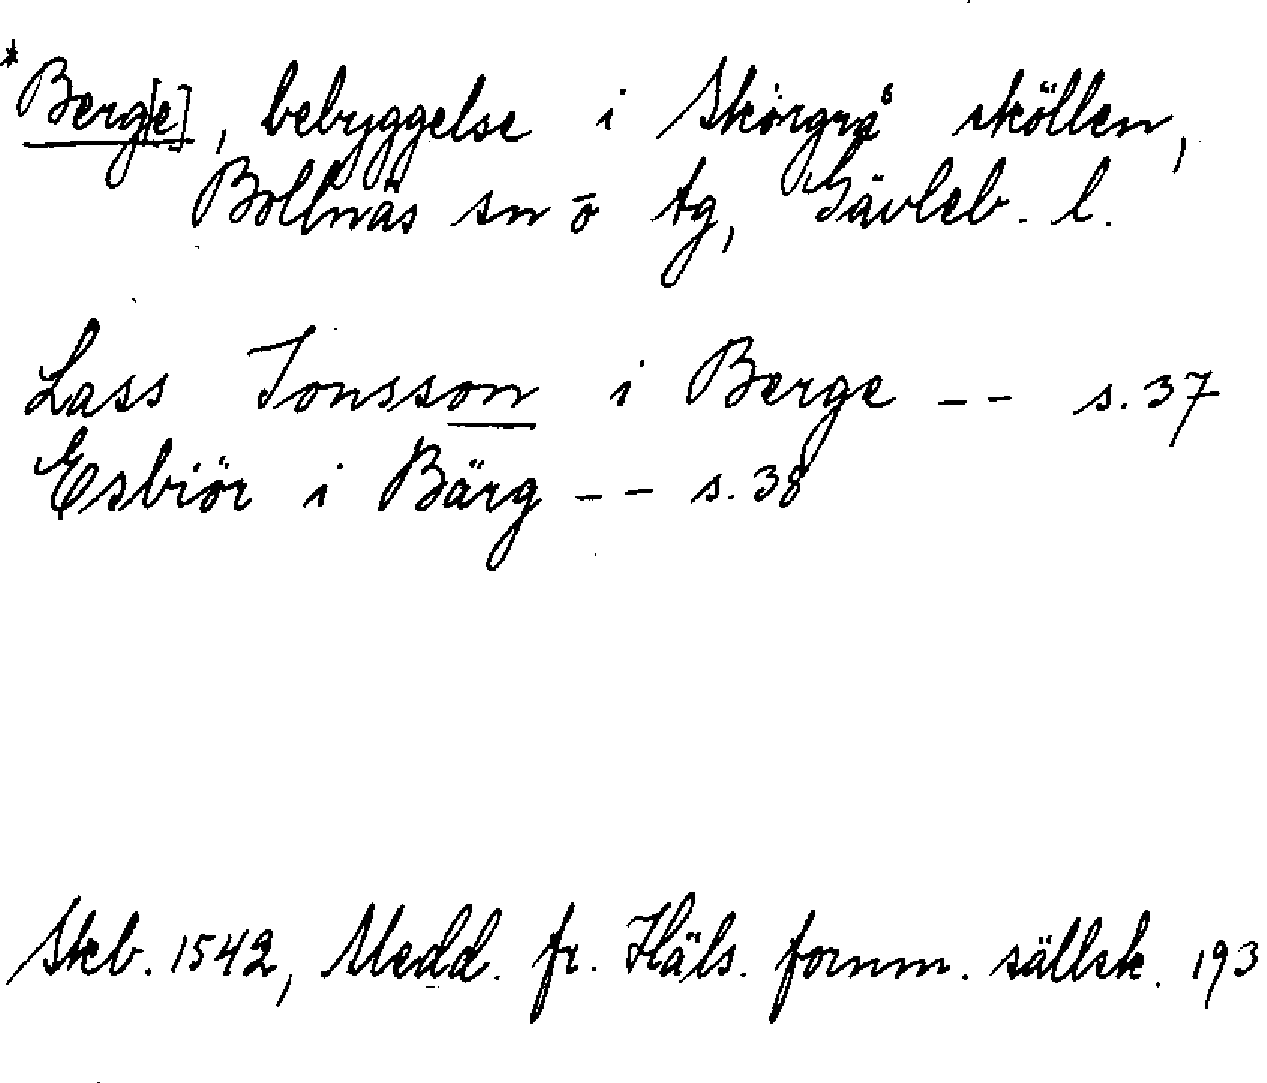 *Berg[e], bebyggelse i Skörgrå sköllen,
Bollnäs sn o tg, Gävleb. l.
Lass Jonsson i Berge -- s. 37
Esbiör i Bärg -- s. 38
Skb. 1542, Medd. fr. Häls. fornm. sällsk. 193